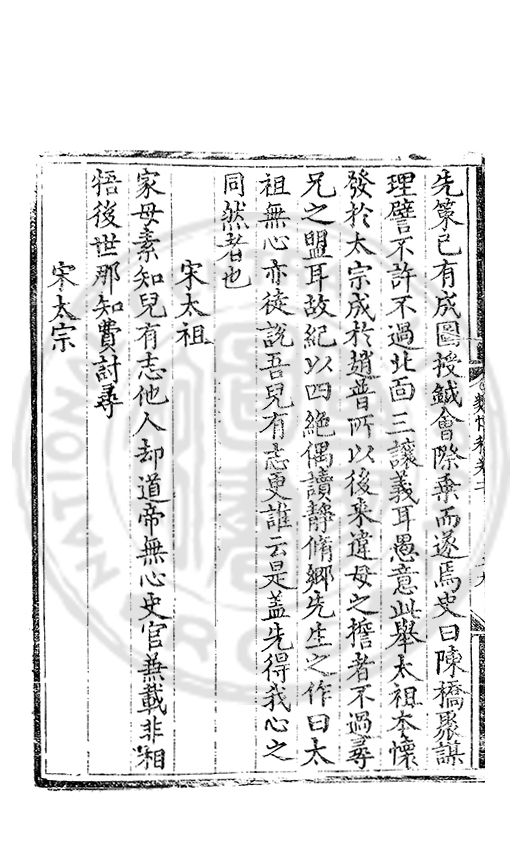 先策已有成圖授鉞會際乗而遂焉史曰陳橋聚謀
理譬不許不過北面三讓義耳愚意此舉太祖本懷
發於太宗成於趙普所以後來違母之擔者不過尋
兄之盟耳故紀以四絶偶讀靜脩鄉先生之作曰太
祖無心亦徒說吾兒有志更誰云是蓋先得我心之
同然者也
宋太祖
家母素知兒有志他人却道帝無心史官兼載非相
牾後世那知費討尋
宋太宗